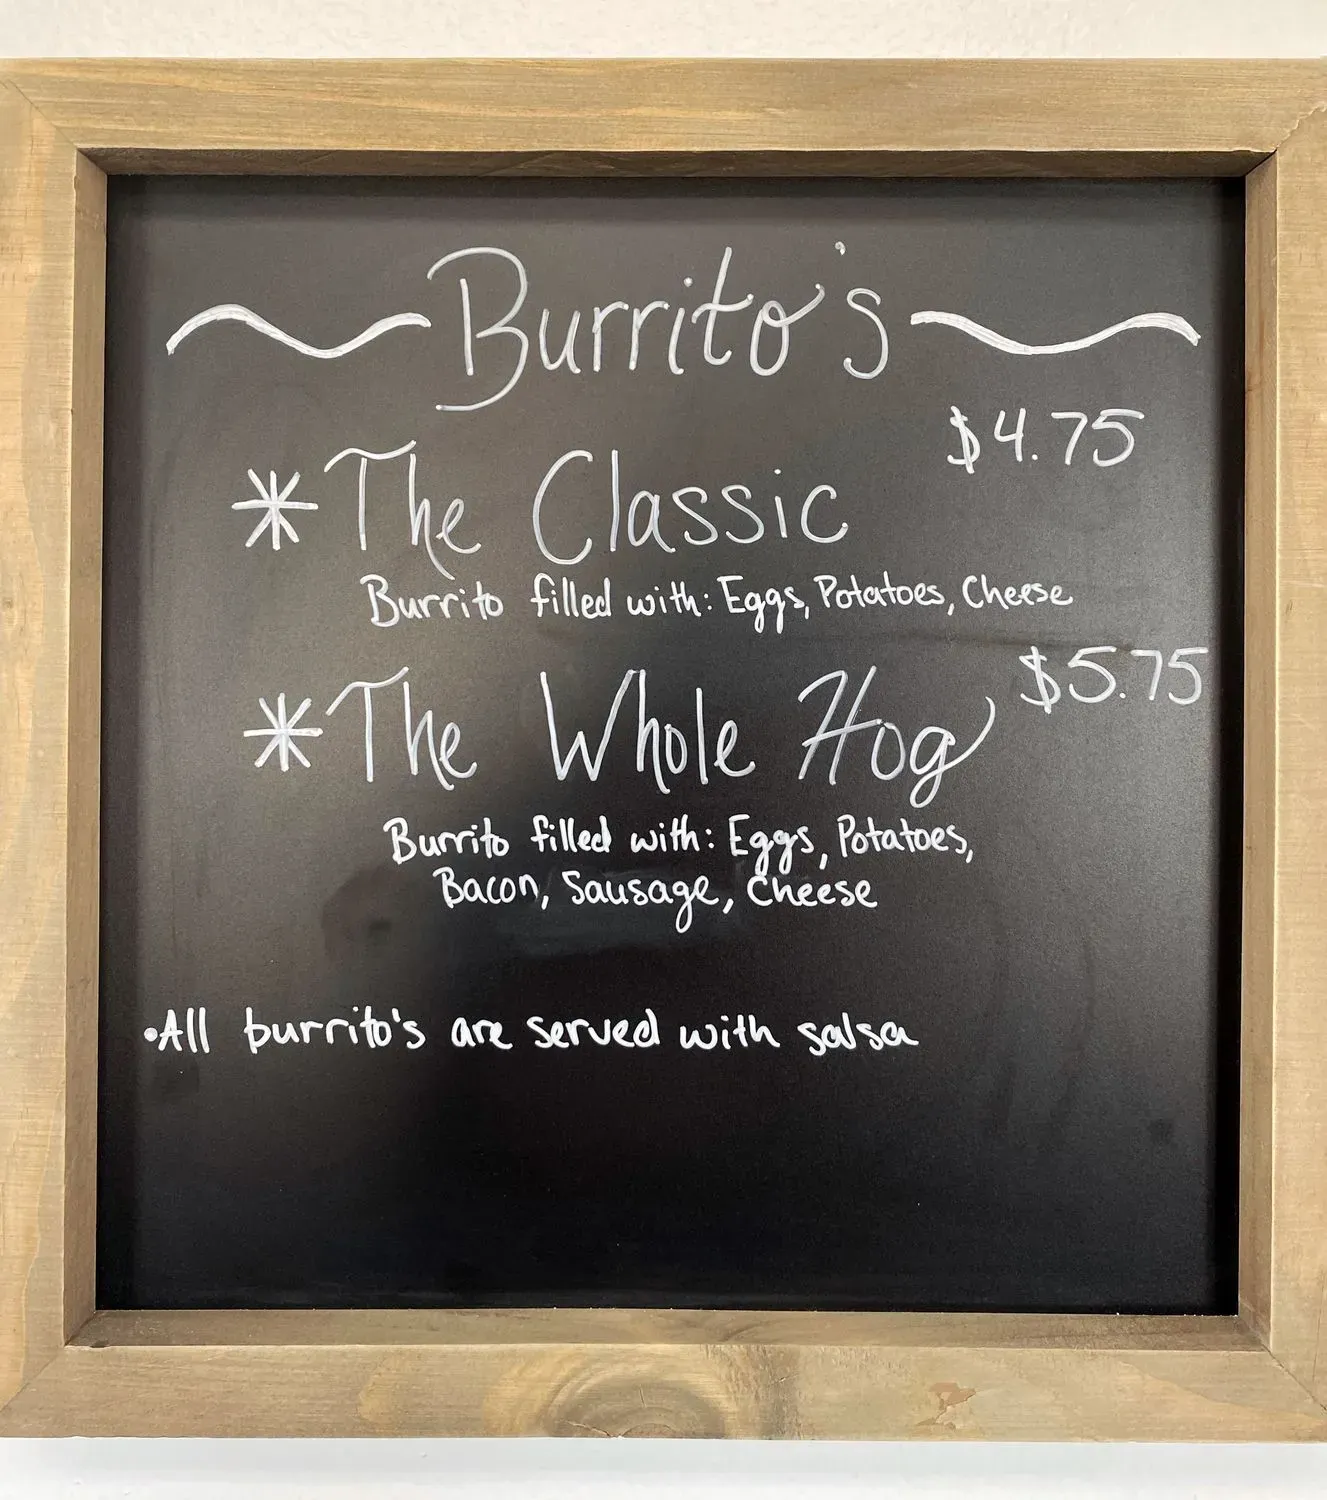 Burrito's
$4.75
* The Classic
Burrito filled with: Eggs, Potatoes, Cheese
$5.75
* The Whole Hog
Burrito filled with: Eggs, Potatoes,
Bacon, Sausage, Cheese
•All burrito's are served with salsa